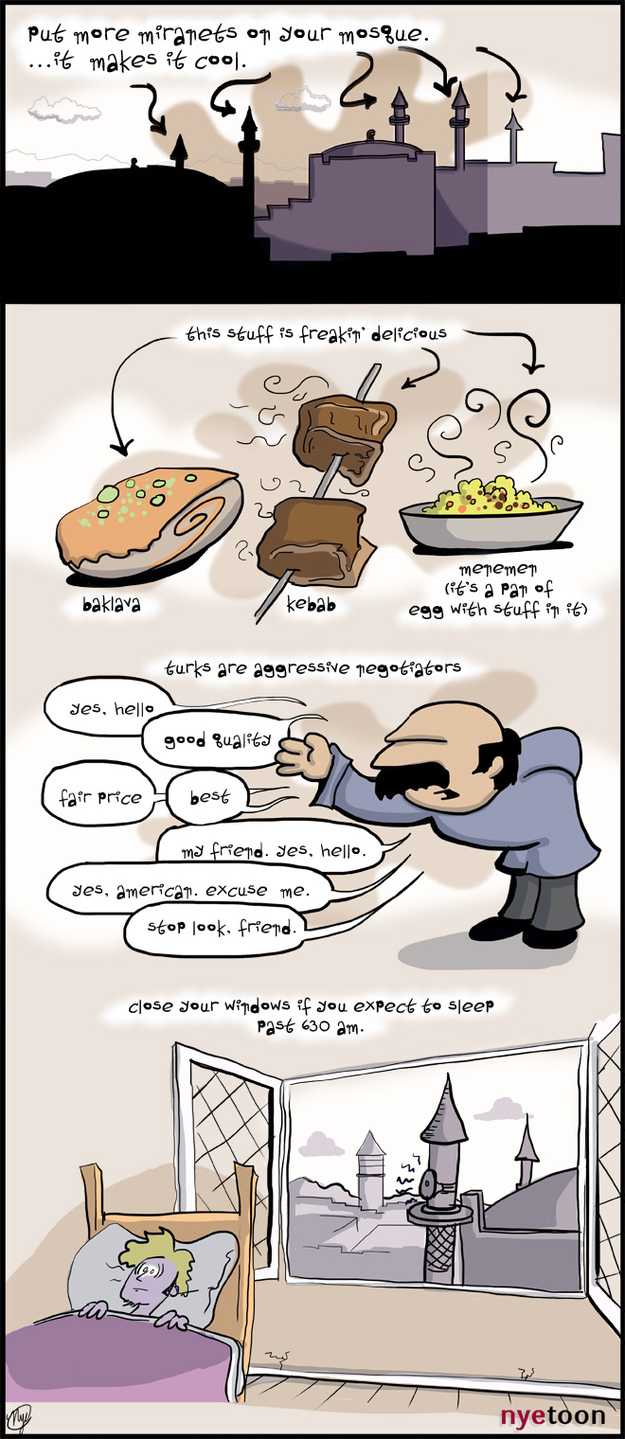 put more miranets on your mosque.
...it makes it cool.
this stuff is freakin' delicious
baklava
kebab
menemen
(it's a pan of
egg with stuff in it)
turks are aggressive negotiators
yes, hello
good quality
fair price
best
my friend. yes, hello.
yes, american. excuse me.
stop look, friend.
close your windows if you expect to sleep
past 630 am.
Nye
nyetoon